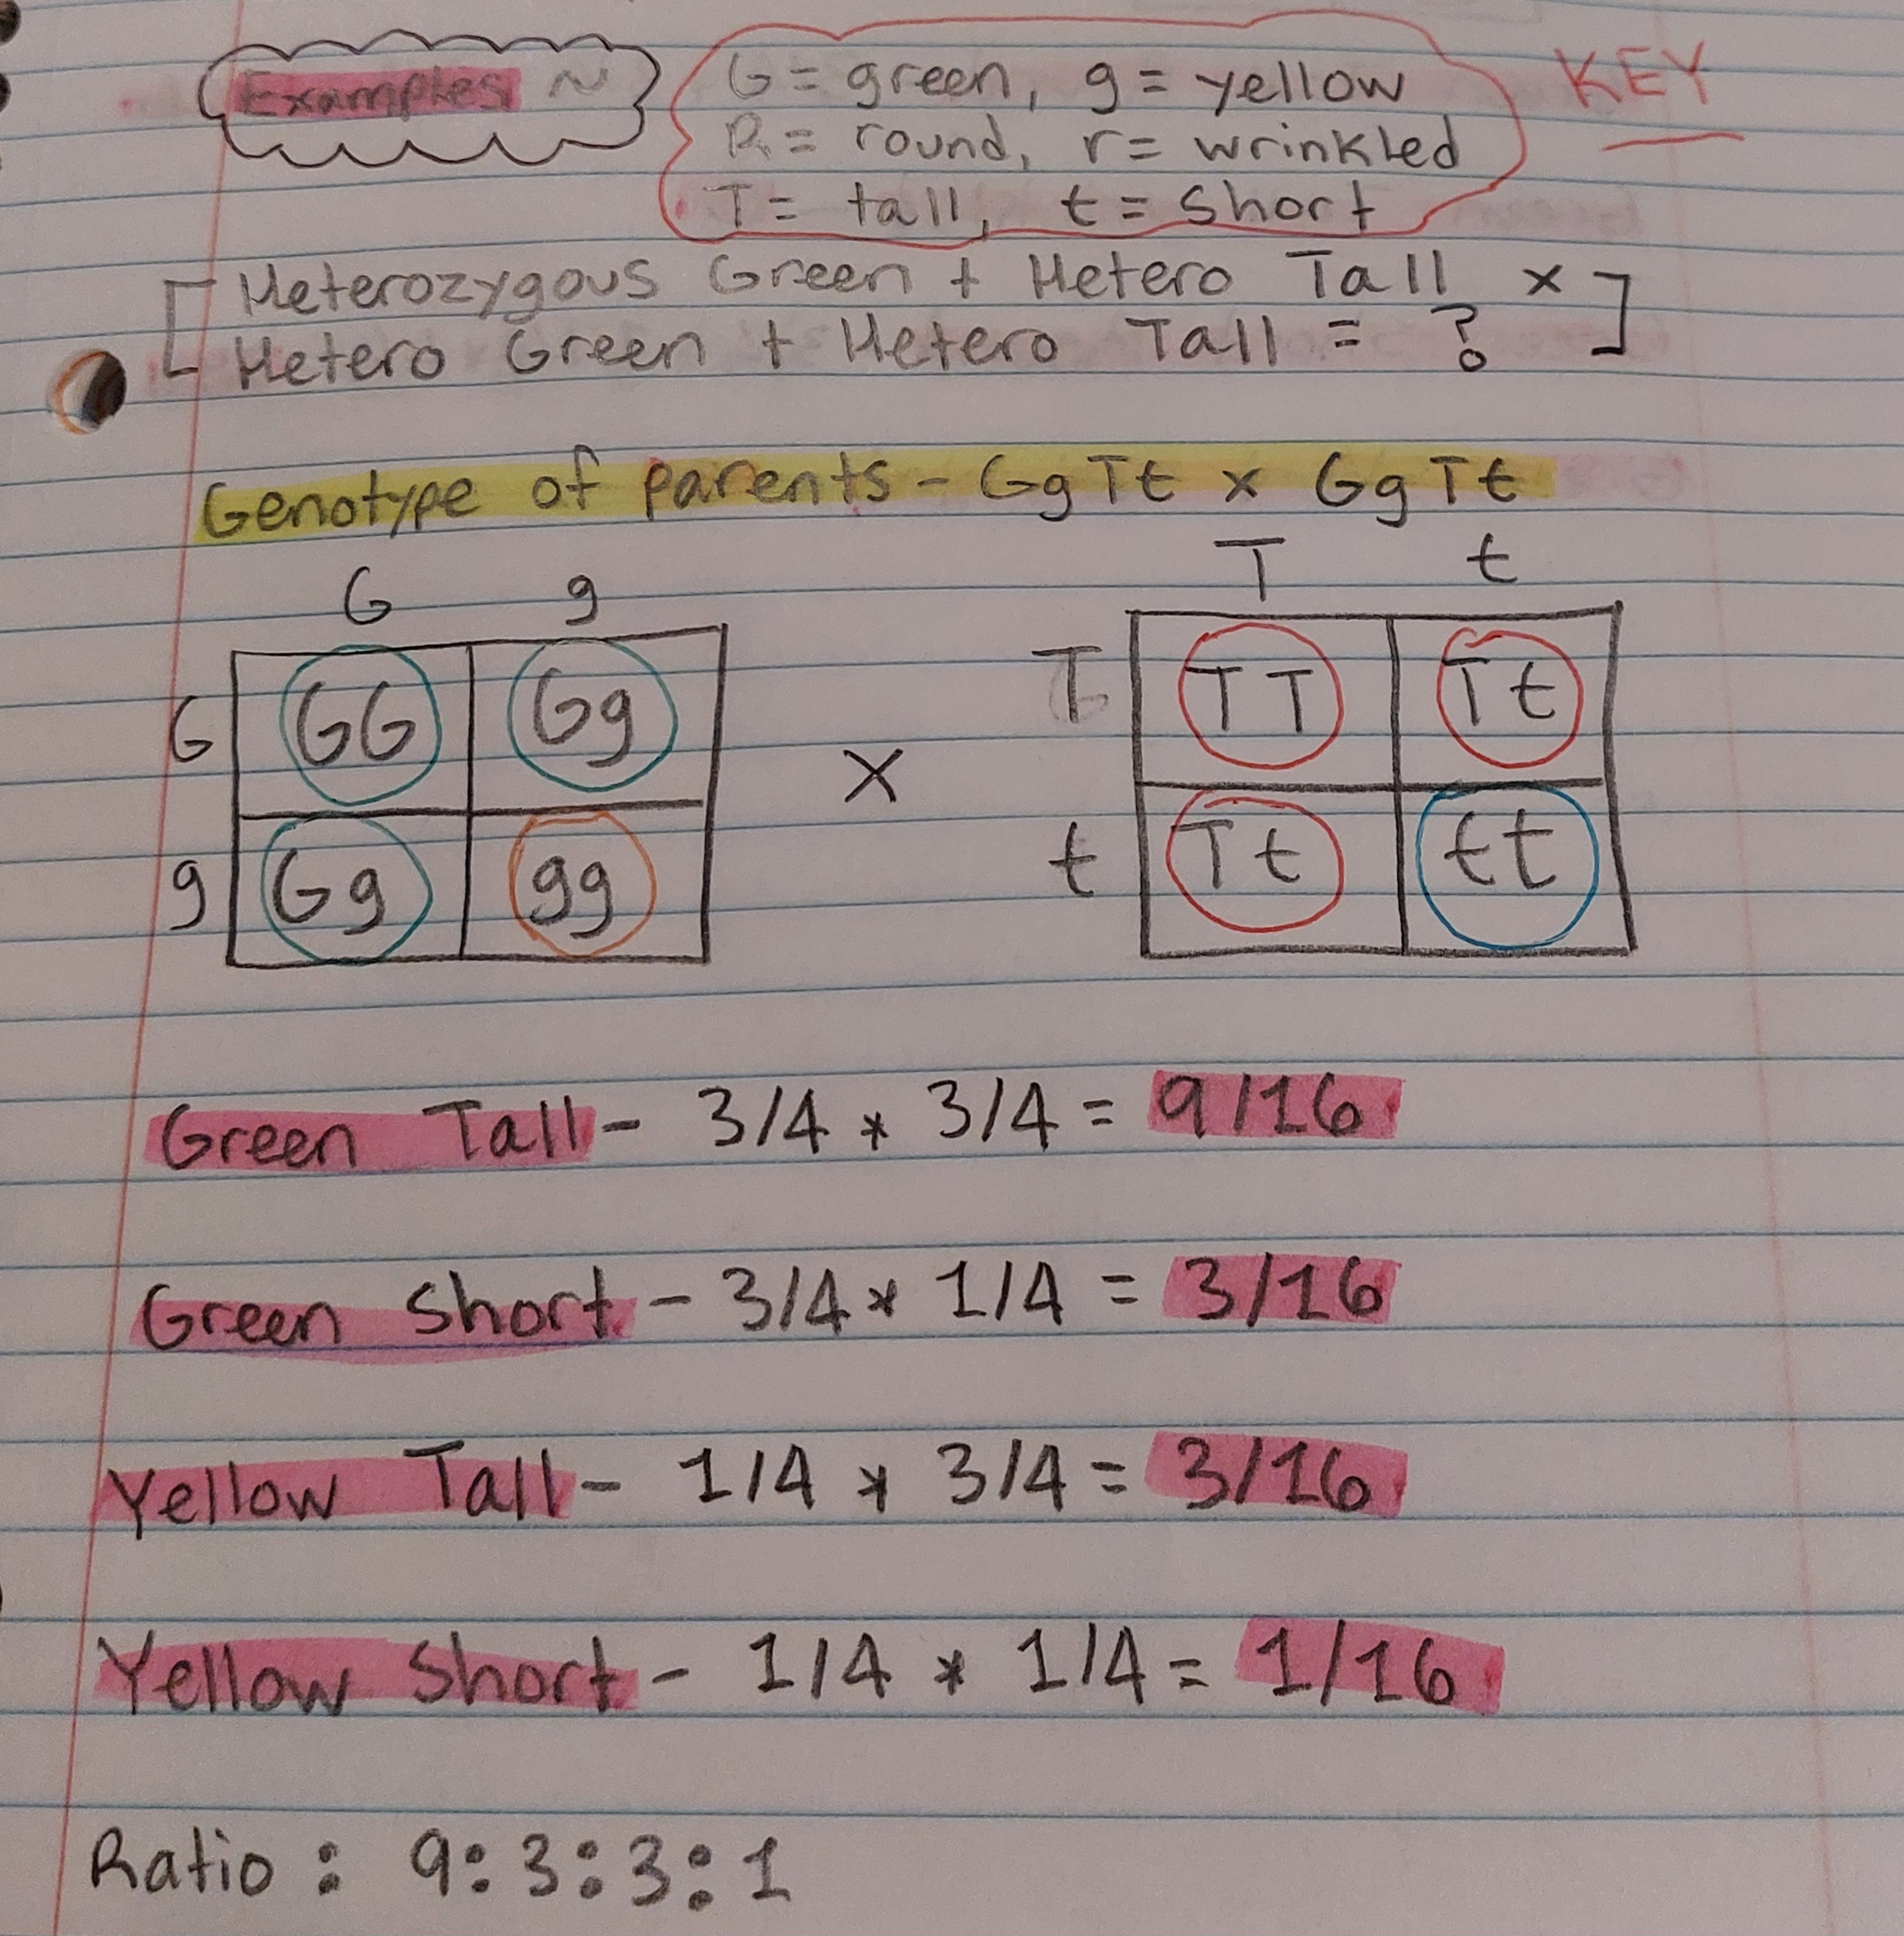 Examples ~
G = green, g = yellow
KEY
R = round, r = wrinkled
T = tall, t = short
[Heterozygous Green + Hetero Tall x
Hetero Green + Hetero Tall = ?]
Genotype of parents - GgTt x GgTt
G g
T t
G GG Gg
T TT Tt
x
g Gg gg
t Tt tt
Green Tall - 3/4 * 3/4 = 9/16
Green Short - 3/4 * 1/4 = 3/16
Yellow Tall - 1/4 * 3/4 = 3/16
Yellow Short - 1/4 * 1/4 = 1/16
Ratio : 9:3:3:1